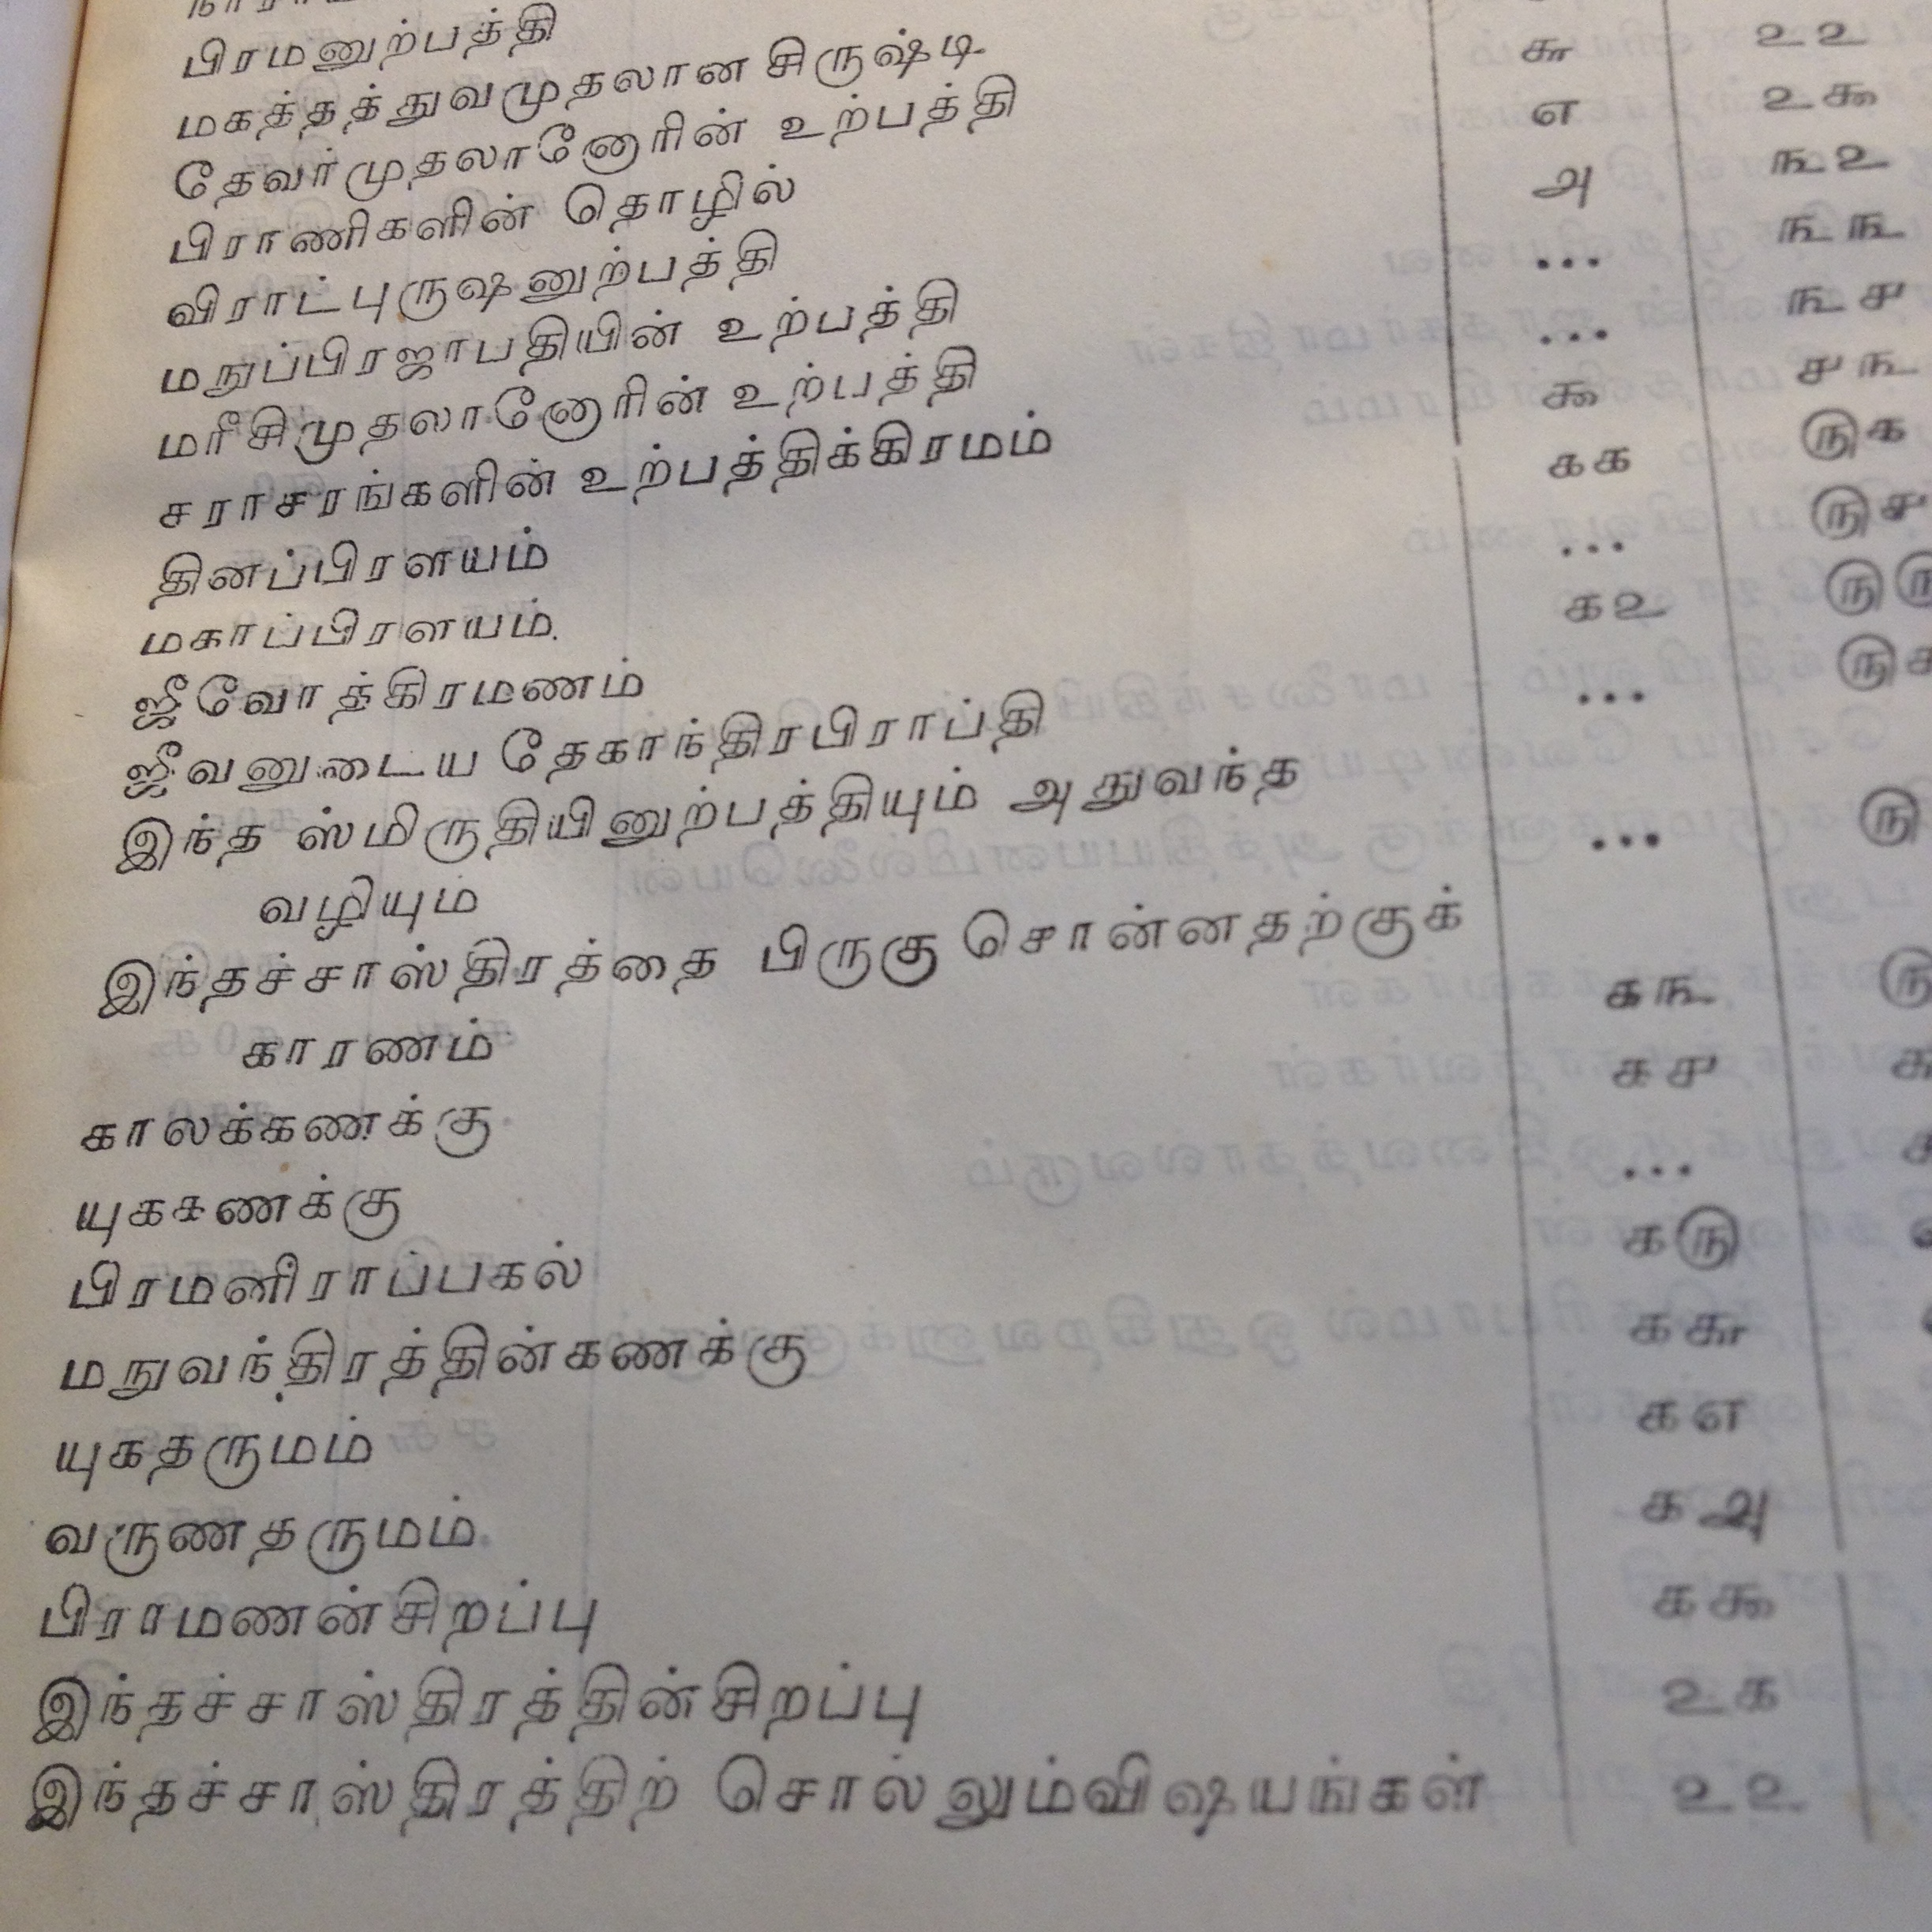 பிரமனுற்பத்தி
மகத்தத்துவமுதலான சிருஷ்டி
தேவர்முதலானோரின் உற்பத்தி ௬ ௨௨
பிராணிகளின் தொழில் ௭ ௨௯
விராட்புருஷனுற்பத்தி ௮ ௩௨
மநுப்பிரஜாபதியின் உற்பத்தி ... ௩௩
மரீசிமுதலானோரின் உற்பத்தி ... ௩௪
சராசரங்களின் உற்பத்திக்கிரமம் ௯ ௪௩
தினப்பிரளயம் ௧௧ ௫௧
மகாப்பிரளயம். ... ௫௪
ஜீவோத்கிரமணம் ௧௨ ௫௫
ஜீவனுடைய தேகாந்திரபிராப்தி ...
இந்த ஸ்மிருதியினுற்பத்தியும் அதுவந்த
வழியும் ...
இந்தச்சாஸ்திரத்தை பிருகு சொன்னதற்குக்
காரணம் ௧௩
காலக்கணக்கு ௧௪
யுககணக்கு ...
பிரமனிராப்பகல் ௧௫
மநுவந்திரத்தின்கணக்கு ௧௬
யுகதருமம் ௧௭
வருணதருமம் ௧௮
பிராமணன்சிறப்பு ௧௯
இந்தச்சாஸ்திரத்தின்சிறப்பு ௨௧
இந்தச்சாஸ்திரத்திற் சொல்லும்விஷயங்கள் ௨௨